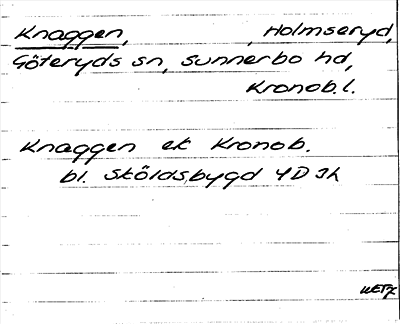 Knaggen, , Holmseryd,
Göteryds sn, Sunnerbo hd,
Kronob.l.
Knaggen ek Kronob.
bl. Sköldsbygd 4D Ih